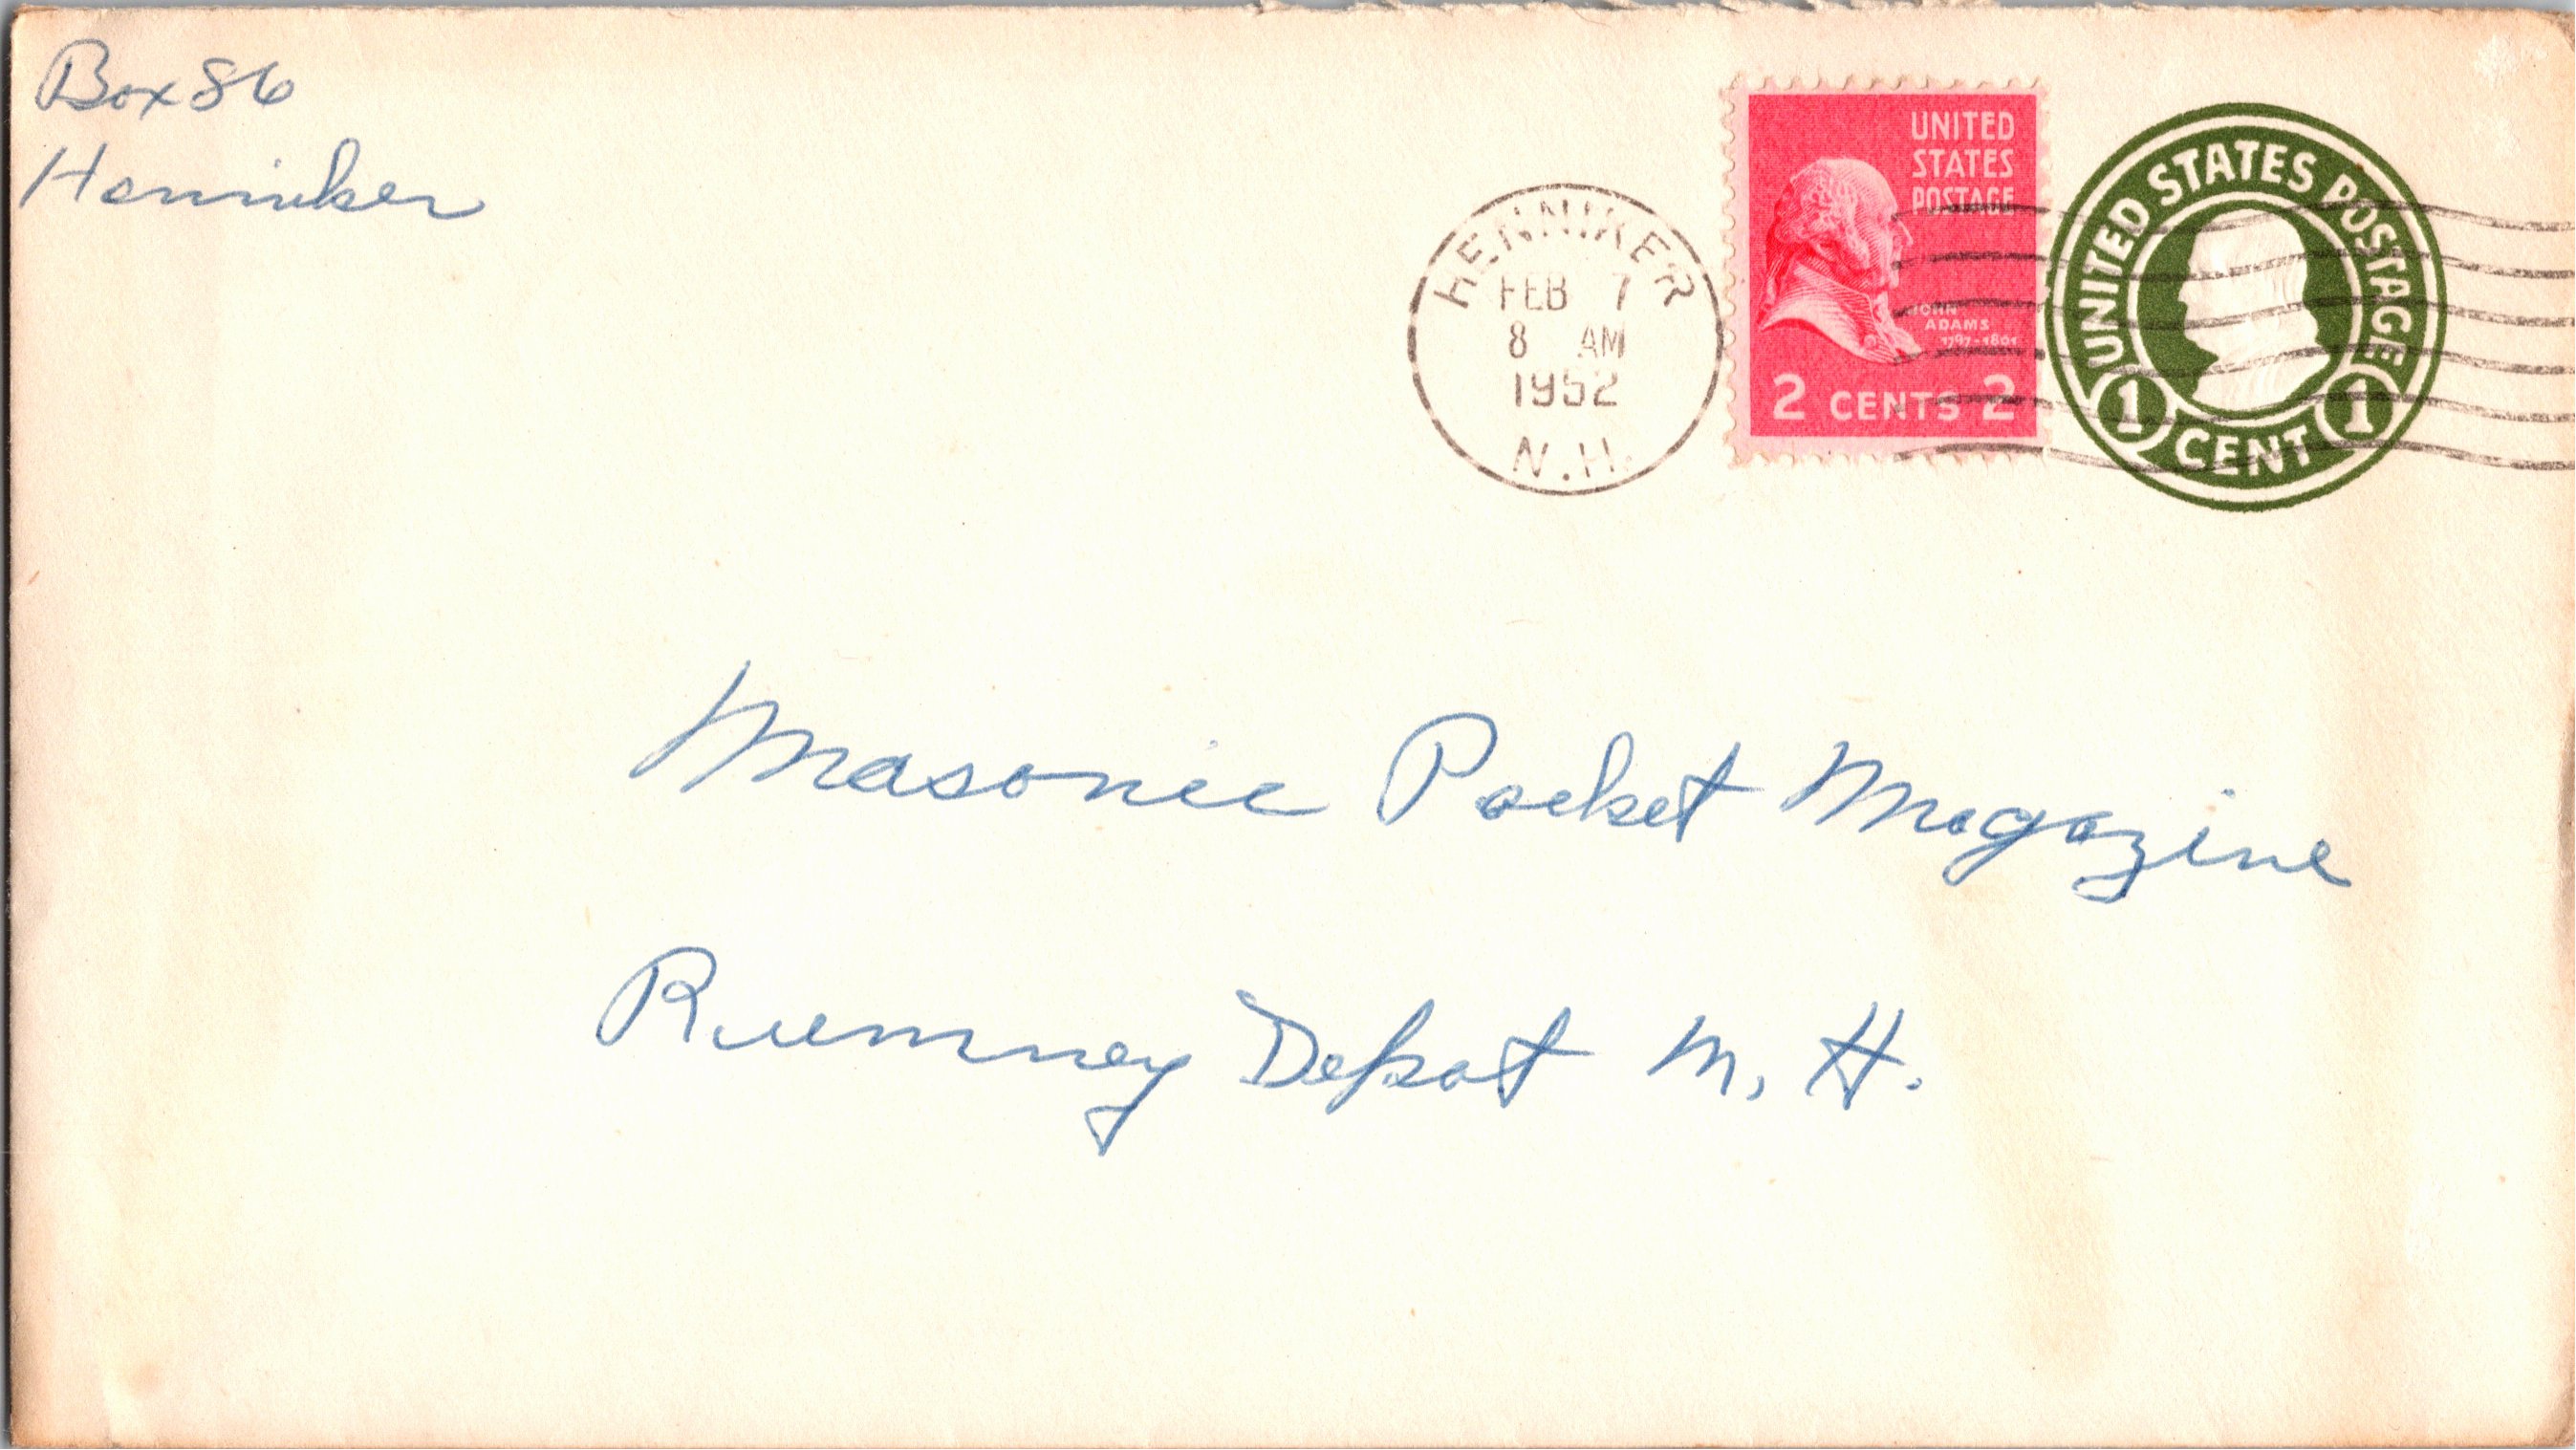 Box 86
Henniker
HENNIKER
FEB 7
8 AM
1952
N.H.
UNITED
STATES
POSTAGE
JOHN
ADAMS
1797-1801
2 CENTS 2
UNITED STATES POSTAGE
1 CENT 1
Masonic Pocket Magazine
Rumney Depot N. H.